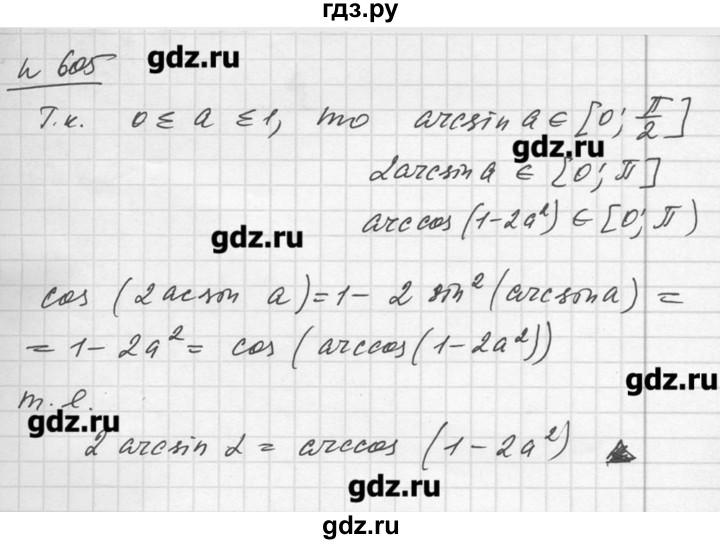 гдз.ру
gdz.ru
N 605
Т.к. 0 ≤ a ≤ 1, то arcsin a ∈ [0; π/2]
gdz.ru
2arcsin a ∈ [0; π]
arccos (1-2a²) ∈ [0; π)
gdz.ru
cos (2 acson a) = 1 - 2 sin² (arcsona) =
= 1 - 2a² = cos (arccos (1-2a²))
gdz.ru
т.е.
gdz.ru
2 arcsin α = arccos (1-2a²)
gdz.ru
gdz.ru